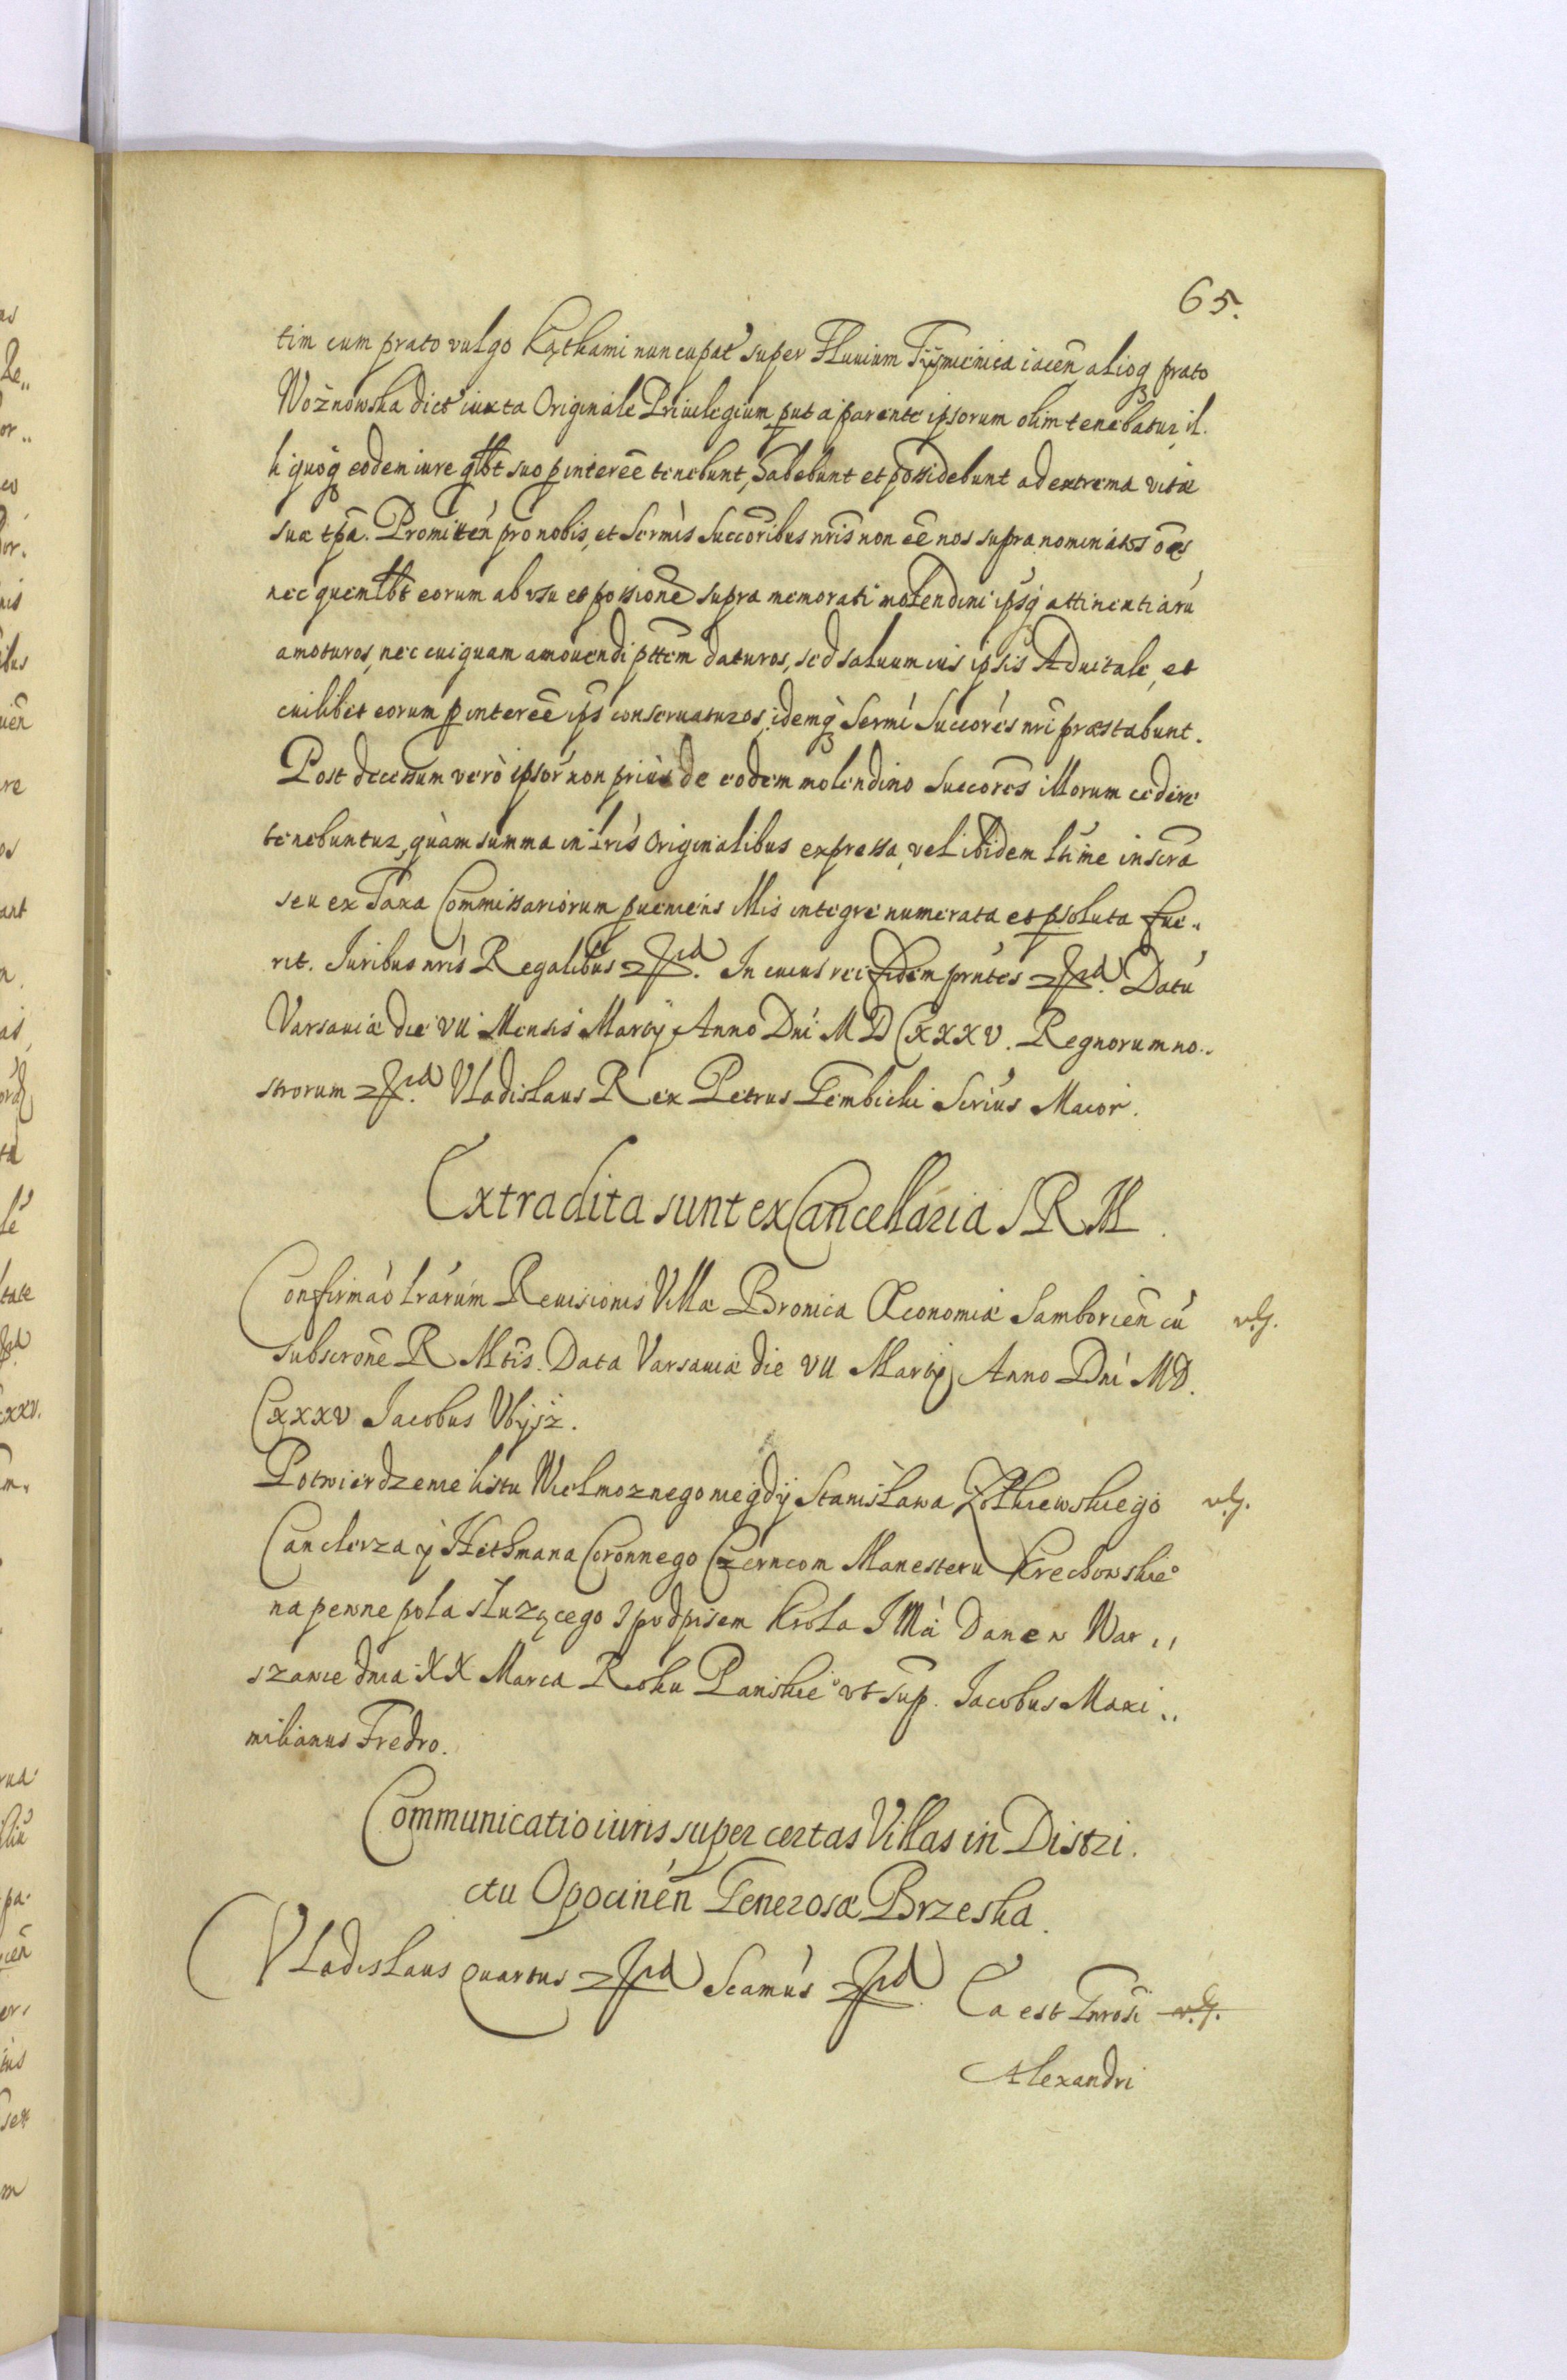 65.
tim cum prato vulgo Kąthami nuncupat' super Fluuium Tyśmienica iacen̄ alioq₃ prato
Woźnowska dict' iuxta Originale Priuilegium put a parente ipsorum olim tenebatur, il.
li quoq₃ eodem iure qlbt suo p interee̅ tenebunt, habebunt et possidebunt ad extrema vitæ
suæ tp̄a. Promitten̄ pro nobis, et Sermìs Succōribus nr̄is non ee̅ nos supra nominatos oēs
nec quemlbt eorum ab vsu et possione supra memorati molendini ips₃q attinentiarú
amoturos, nec cuiquam amouendi pttēm daturos, sed saluum ius ipsis Aduitale, et
cuilibet eorum p interee̅ ips̄ conseruaturos, idemq₃ Sermí Succorés nr̄i præstabunt.
Post decessum verò ipsor' non priùs de eodem molendino Succores illorum cedere
tenebuntur, quàm summa in lrís Originalibus expressa, vel ibidem ltīme inscrā
seu ex Taxa Commissariorum pueniens illis integre numerata et psoluta fue„
rit. Iuribus nrís Regalibus ꝛꝑd. In cuius rei fidem prn̄tes ꝛꝑd. Datú
Varsauiæ die VII Mensis Martij Anno Dní MDCXXXV. Regnorum no„
strorum ꝛꝑd. Vladislaus Rex Petrus Gembicki Scrius Maior.
Extradita sunt ex Cancellaria S R M.
Confirmaò lrárum Reuisionis Villæ Bronica Œconomiæ Samborien̄ cú
subscrone R Mtis. Data Varsauiæ die VII Martij Anno Dní MD.
CXXXV Jacobus Vbÿsz.
vlg.
Potwierdzenie listu Wielmoznego niegdÿ Stanisława Zołkiewskiego
Canclerza ÿ Hethmana Coronnego Czerncom Manesteru Krechowskie°
na pewne pola słuzącego s podpisem Krola J Má Dan e w War„
szawie dnia XX Marca Roku Panskie° vt sup. Jacobus Maxi„
milianus Fredro.
vlg.
Communicatio iuris super certas Villas in Distri.
ctu Opocinén Generosæ Brzeska.
Vladislaus quartus ꝛꝑd Scamús ꝛꝑd. Ca est Gnrosi
Alexandri